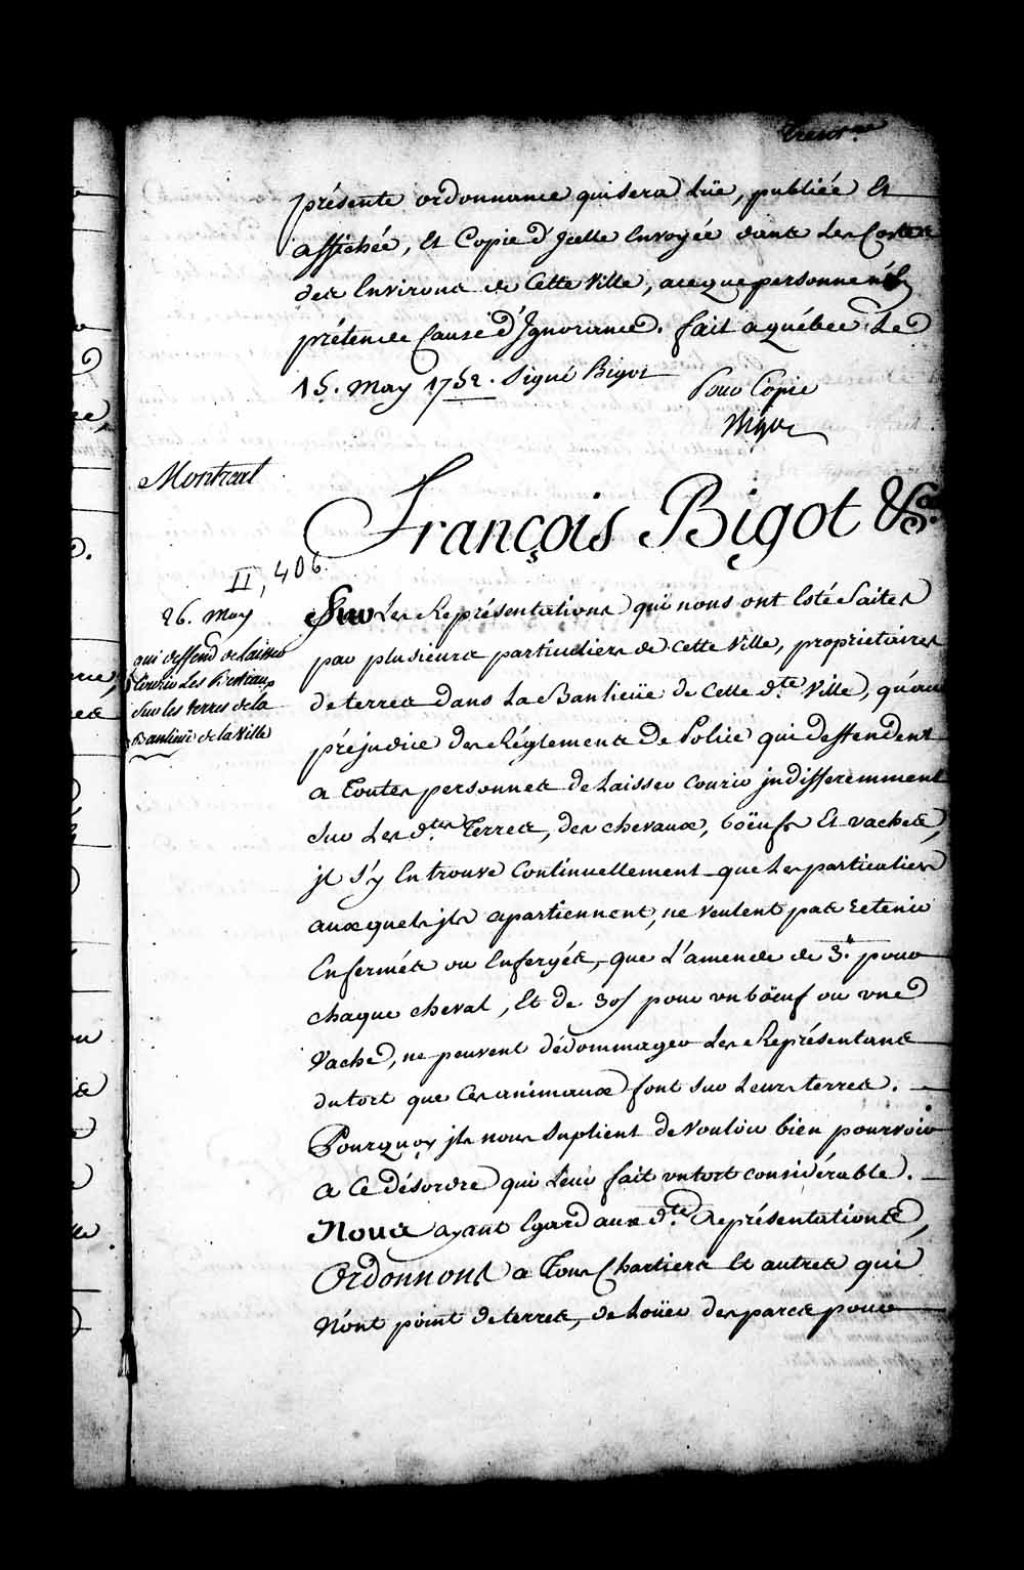 présente ordonnance qui sera Lüe, publiée Et
affichée, Et Copie d'Jcelle Envoyée dans Les Costes
des Environs de Cette Ville, aceque personne n'En
prétende Cause d'Ignorance. fait a québec Le
15. May 1752. Signé Bigot
Pour Copie
Bigot
Montreal
François Bigot &ca.
II, 406.
26. May
qui deffend de Laisser
Courir Les Bestiaux
Sur les terres de la
Banlieüe de la Ville
Sur Les Représentations qui nous ont Esté faites
par plusieurs particuliers de cette Ville, proprietaires
de terres dans La Banlieüe de Cette d.te Ville, qu'au
préjudice des Réglements De Police qui deffendent
a Toutes personnes de Laisser Courir jndifferemment
Sur Les d.tes Terres, des chevaux, boëufs Et vaches,
jl s'y En trouve Continuellement que Les particuliers
auxquels jls apartiennent, ne veulent pas retenir
Enfermés ou Enfergés, que L'amende de 3.tt pour
chaque cheval, Et de 30s pour un böeuf ou une
Vache, ne peuvent dédommager Les Représentans
du tort que Ces animaux font sur Leurs terres.
Pourquoy jls nous Suplient de vouloir bien pourvoir
a Ce désordre qui Leur fait un tort considérable.
Nous ayant Egard aux d.tes Représentations,
Ordonnons a Tous Chartiers Et autres qui
N'ont point de terres, de Loüer des parcs pour